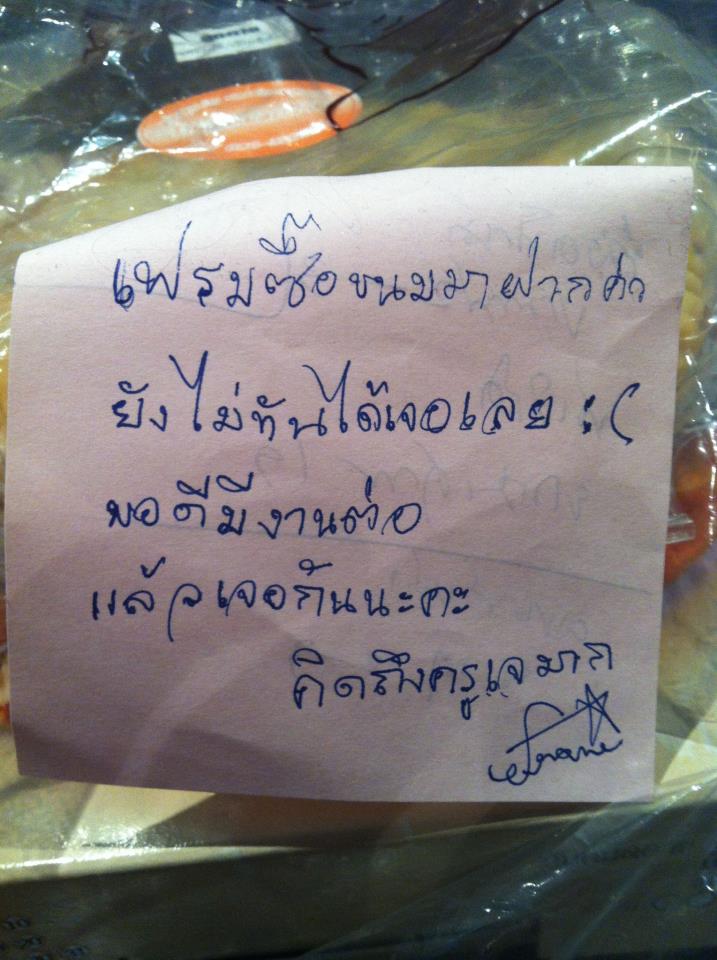 เฟรมซื้อขนมมาฝากค่ะ
ยังไม่ทันได้เจอเลย :(
พอดีมีงานต่อ
แล้วเจอกันนะคะ
คิดถึงครูเจมาก